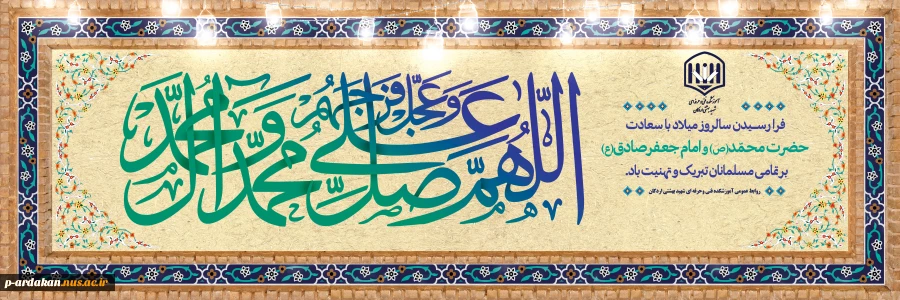 آموزشکده فنی و حرفه‌ای
شهید بهشتی اردکان
فرا رسیدن سالروز میلاد با سعادت
حضرت محمّد(ص) و امام جعفر صادق(ع)
بر تمامی مسلمانان تبریک و تهنیت باد.
روابط عمومی آموزشکده فنی و حرفه ای شهید بهشتی اردکان
اللّهمّ صلّ علی محمّد و آل محمّد و عجّل فرجهم
p-ardakan.nus.ac.ir